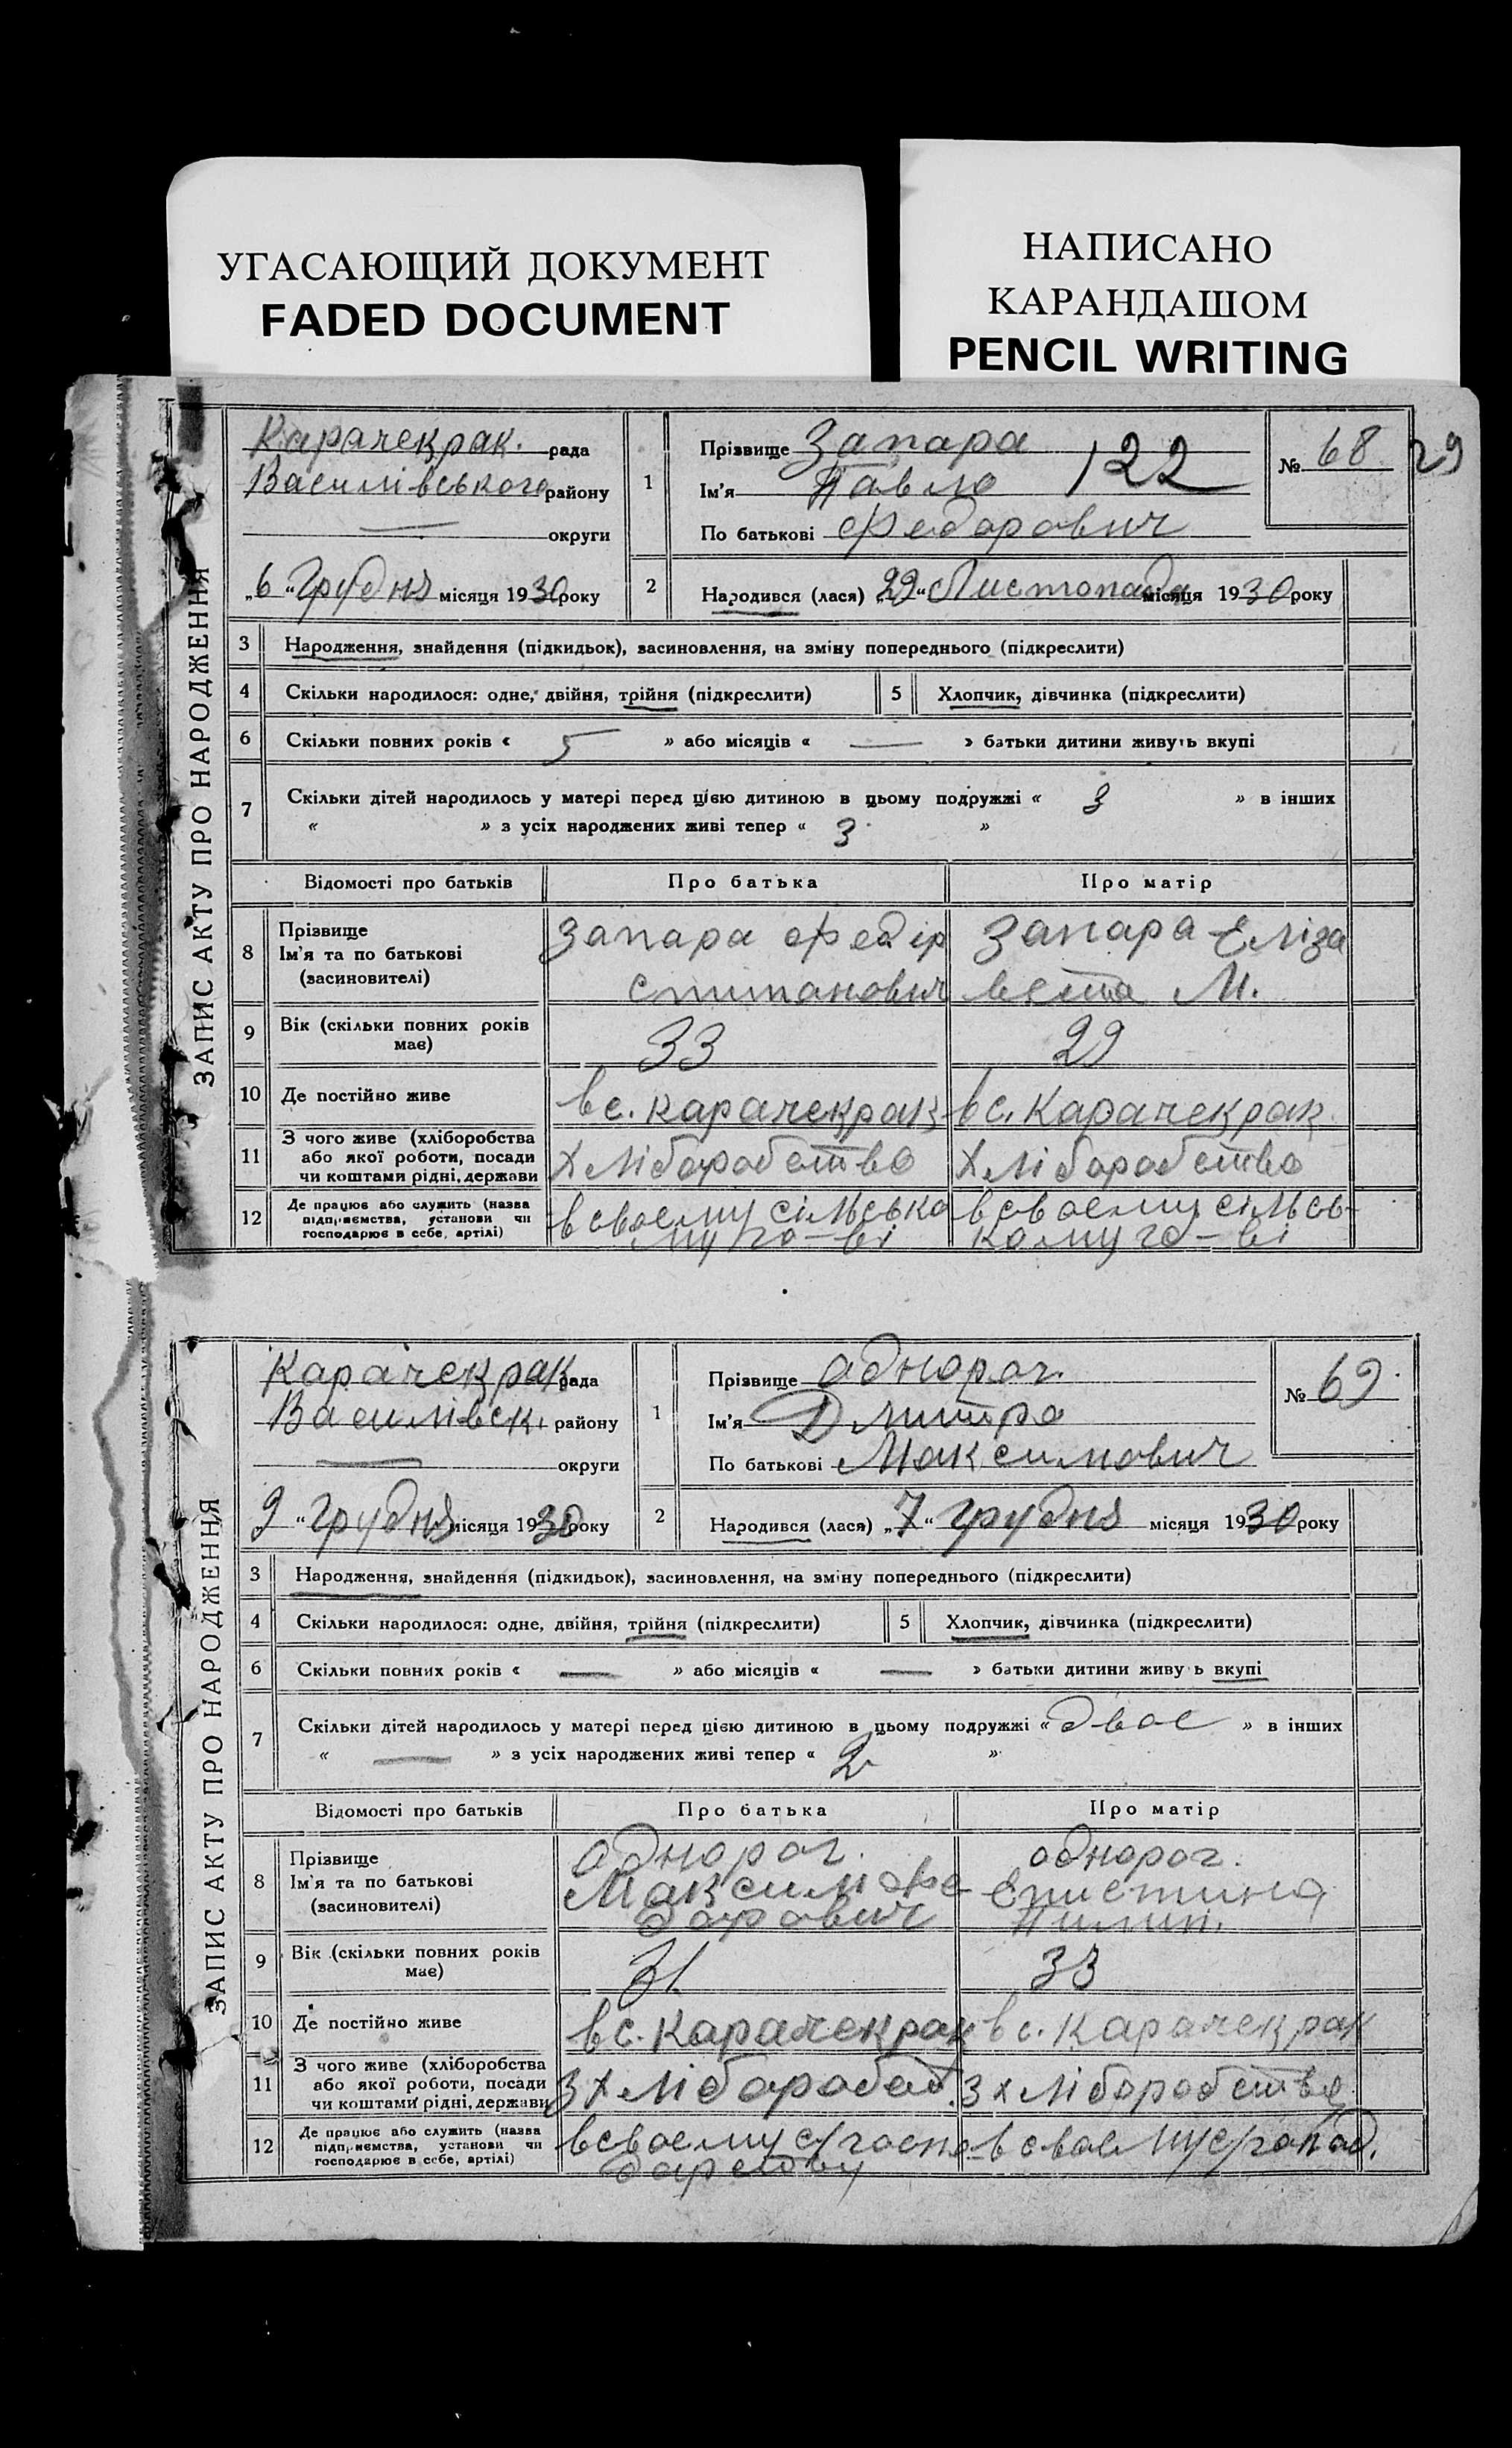 УГАСАЮЩИЙ ДОКУМЕНТ
FADED DOCUMENT
НАПИСАНО
КАРАНДАШОМ
PENCIL WRITING
ЗАПИС АКТУ ПРО НАРОДЖЕННЯ
Карачекрак. рада
Василівського району
— округи
„6“ Грудня місяця 1930 року
1 Прізвище Запара 122
Ім'я Павло
По батькові Федорович
№ 68
29
2 Народився (лася) „29“ Листопада місяця 1930 року
3 Народження, знайдення (підкидьок), засиновлення, на зміну попереднього (підкреслити)
4 Скільки народилося: одне, двійня, трійня (підкреслити) 5 Хлопчик, дівчинка (підкреслити)
6 Скільки повних років « 5 » або місяців « — » батьки дитини живуть вкупі
7 Скільки дітей народилось у матері перед цією дитиною в цьому подружжі « 3 » в інших
« » з усіх народжених живі тепер « 3 »
Відомості про батьків Про батька Про матір
8 Прізвище
Ім'я та по батькові
(засиновителі)
Запара Федір
Степанович
Запара Єліза
вета М.
9 Вік (скільки повних років
має) 33 29
10 Де постійно живе в с. Карачекрак в с. Карачекрак
11 З чого живе (хліборобства
або якої роботи, посади
чи коштами рідні, держави
Хліборобство Хліборобство
12 Де працює або служить (назва
підприємства, установи чи
господарює в себе, артілі)
в своєму сільсько
му го-ві
в своєму сільсь-
кому го-ві
ЗАПИС АКТУ ПРО НАРОДЖЕННЯ
Карачекрак рада
Василівськ. району
— округи
9 “ Грудня місяця 1930 року
1 Прізвище Однорог.
Ім'я Дмитро
По батькові Максимович
№ 69
2 Народився (лася) „7“ грудня місяця 1930 року
3 Народження, знайдення (підкидьок), засиновлення, на зміну попереднього (підкреслити)
4 Скільки народилося: одне, двійня, трійня (підкреслити) 5 Хлопчик, дівчинка (підкреслити)
6 Скільки повних років « — » або місяців « — » батьки дитини живу ь вкупі
7 Скільки дітей народилось у матері перед цією дитиною в цьому подружжі « двоє » в інших
« — » з усіх народжених живі тепер « 2 »
Відомості про батьків Про батька Про матір
8 Прізвище
Ім'я та по батькові
(засиновителі)
Однорог.
Максим Фе
дорович
Однорог.
Єпистина
Пилип.
9 Вік (скільки повних років
має) 31 33
10 Де постійно живе в с. Карачекрак в с. Карачекрак
11 З чого живе (хліборобства
або якої роботи, посади
чи коштами рідні, держави
З хліборобст. З хліборобства
12 Де працює або служить (назва
підприємства, установи чи
господарює в себе, артілі)
в своєму с/госпо
дарству
в своєму с/